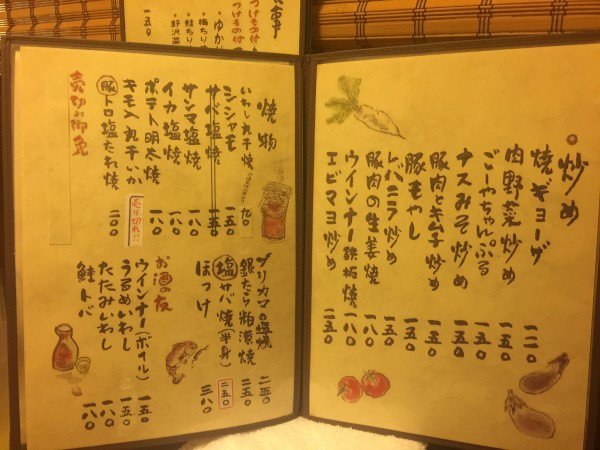 つけもの付
つけもの付
・ゆか
・梅ちり
・鮭ちり
・野沢菜
一五〇
炒め
焼ギョーザ 一二〇
肉野菜炒め 一五〇
ごーやちゃんぷる 一五〇
ナスみそ炒め 一五〇
豚肉とキムチ炒め 一五〇
豚もやし
レバニラ炒め 一五〇
豚肉の生姜焼 一八〇
ウインナー鉄板焼 一八〇
エビマヨ炒め 二五〇
焼物
いわし丸干焼 九〇
シシャモ 一五〇
サバ塩焼 一五〇
サンマ塩焼 一八〇
イカ塩焼 一八〇
ポテト明太焼 一八〇
キモ入丸干いか 売り切れ
豚トロ塩たれ焼 二〇〇
売切れ御免
ブリカマの塩焼 二五〇
銀だら粕漬焼 二五〇
塩サバ焼(半身) 二五〇
ほっけ 三八〇
お酒の友
ウインナー(ボイル) 一五〇
うるめいわし 一五〇
たたみいわし 一八〇
鮭トバ 一八〇